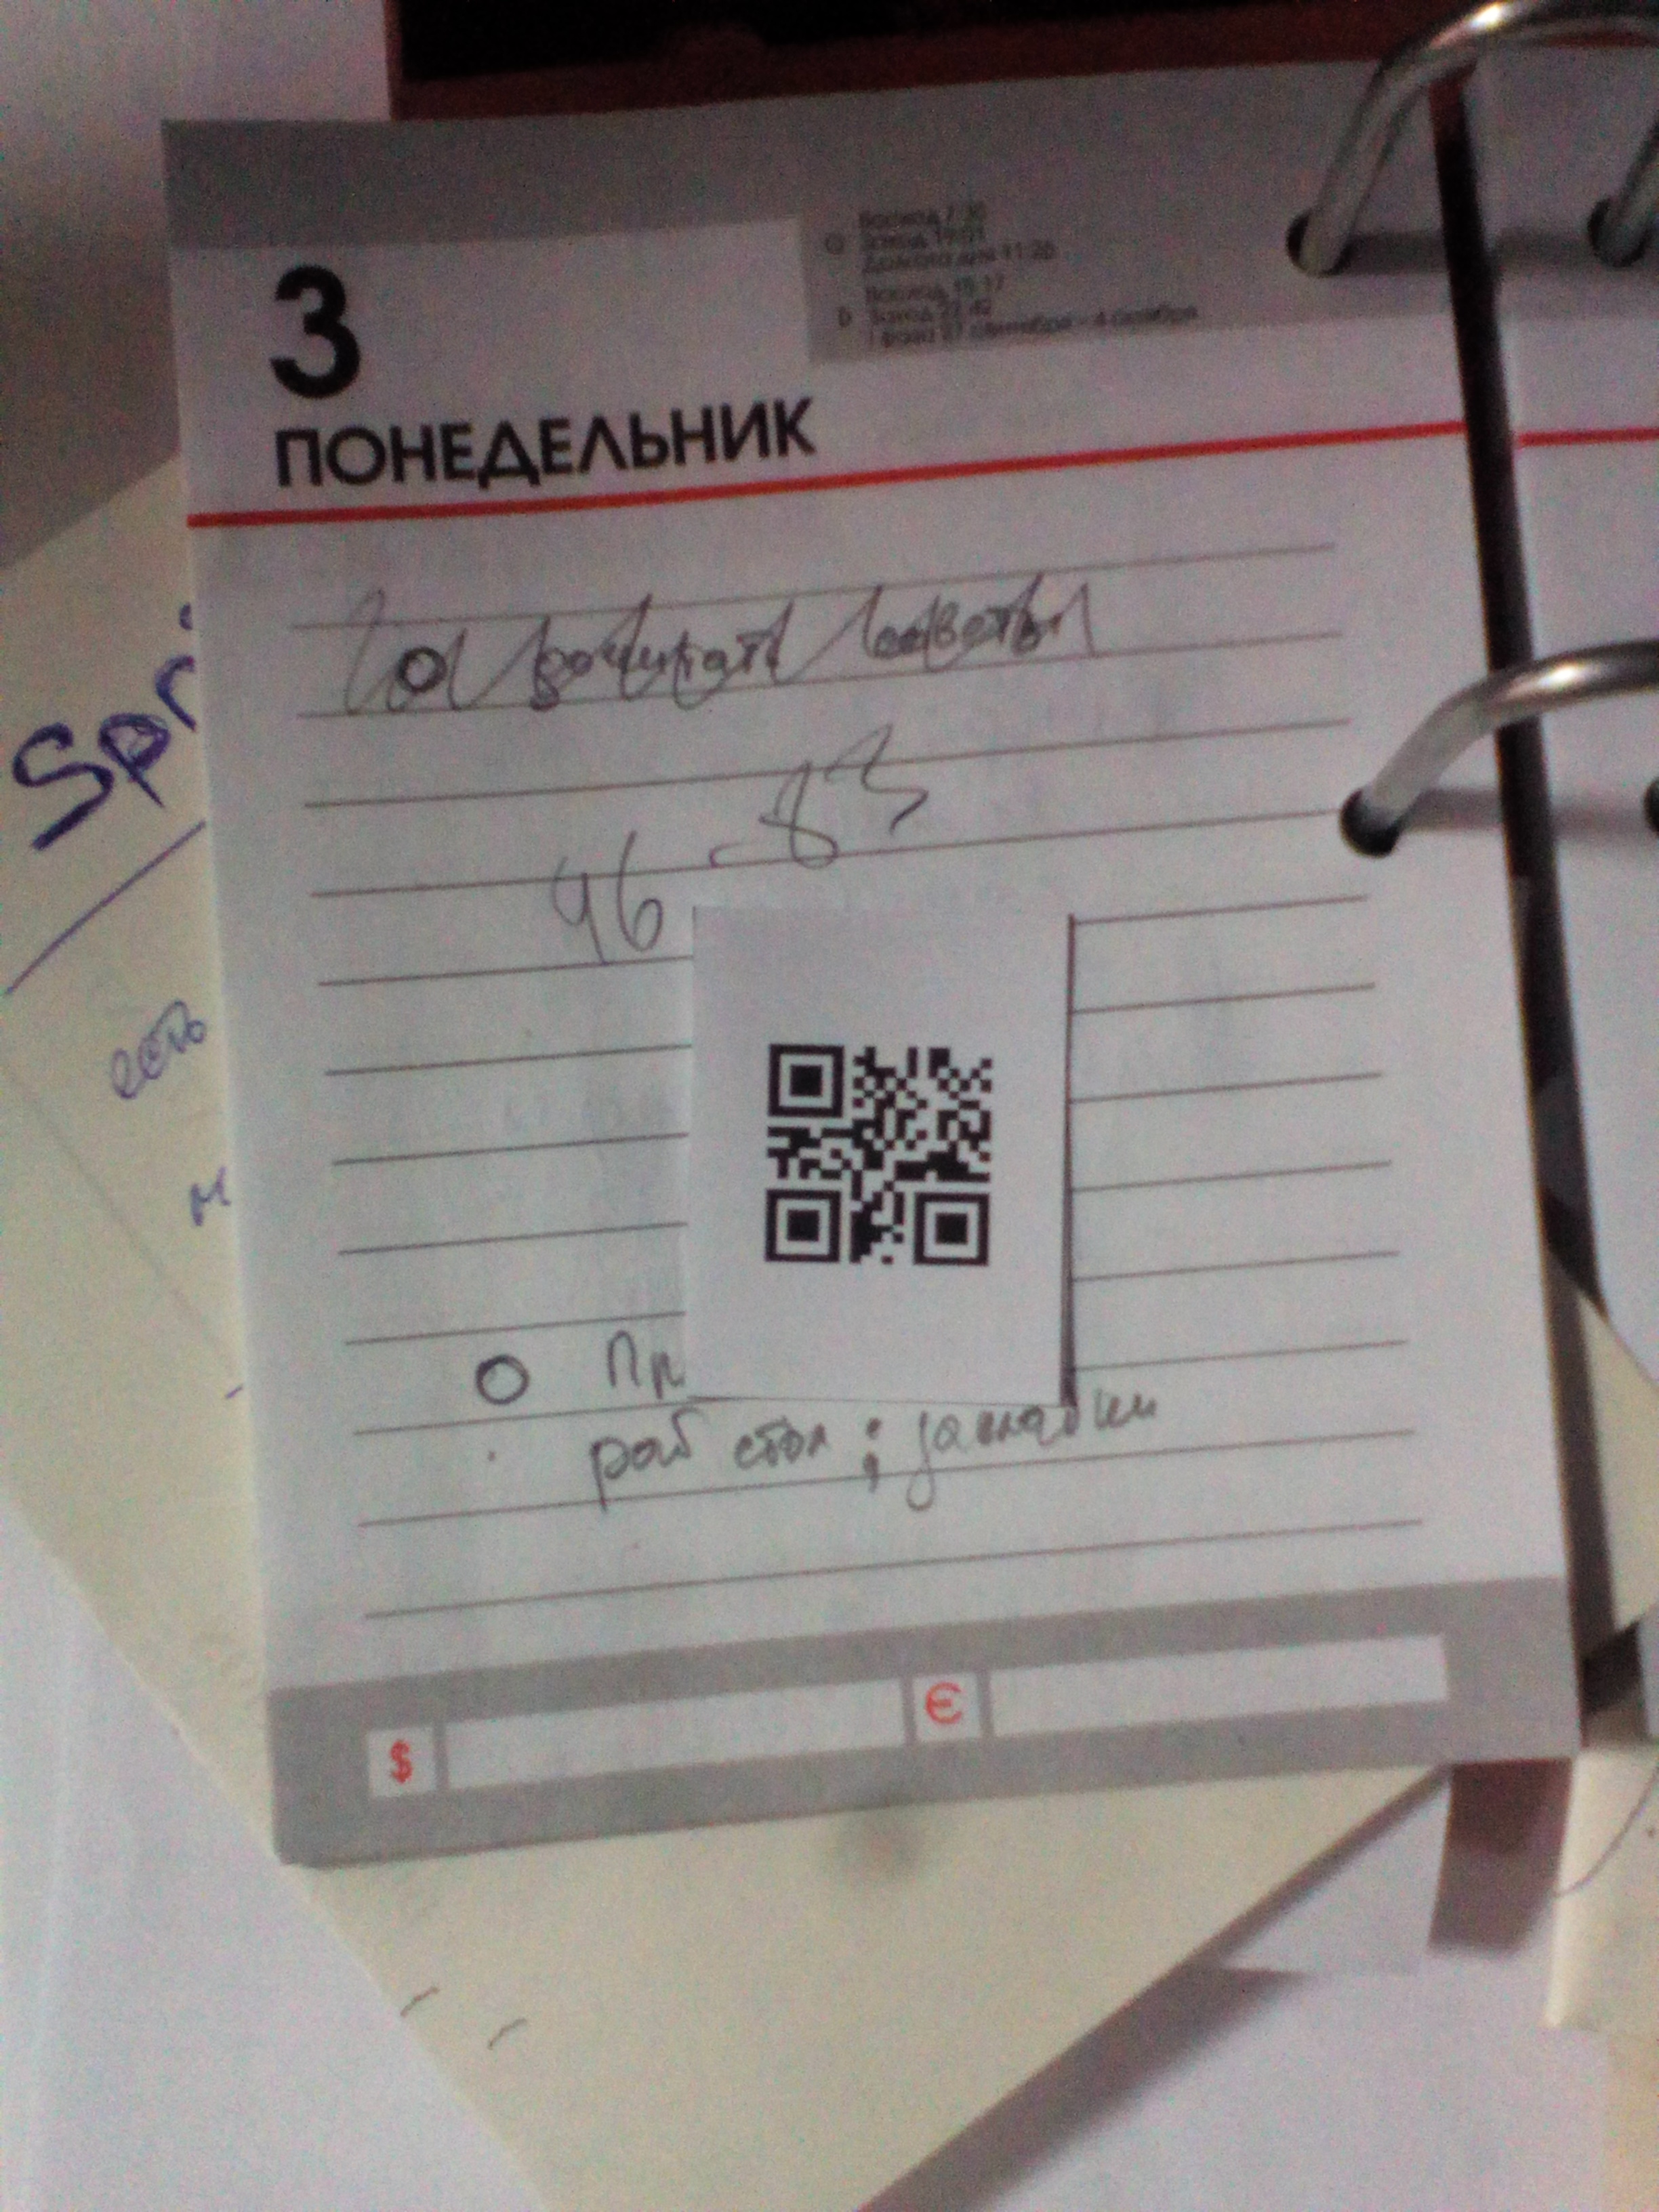 3
ПОНЕДЕЛЬНИК
Восход 7:36
Заход 19:01
Долгота дня 11:26
Восход 15:17
Заход 22:42
I фаза 27 сентября – 4 октября
дочитать советы
46 - 83
Пр
раб стол ; закладки
$ €
Spr
есть
м